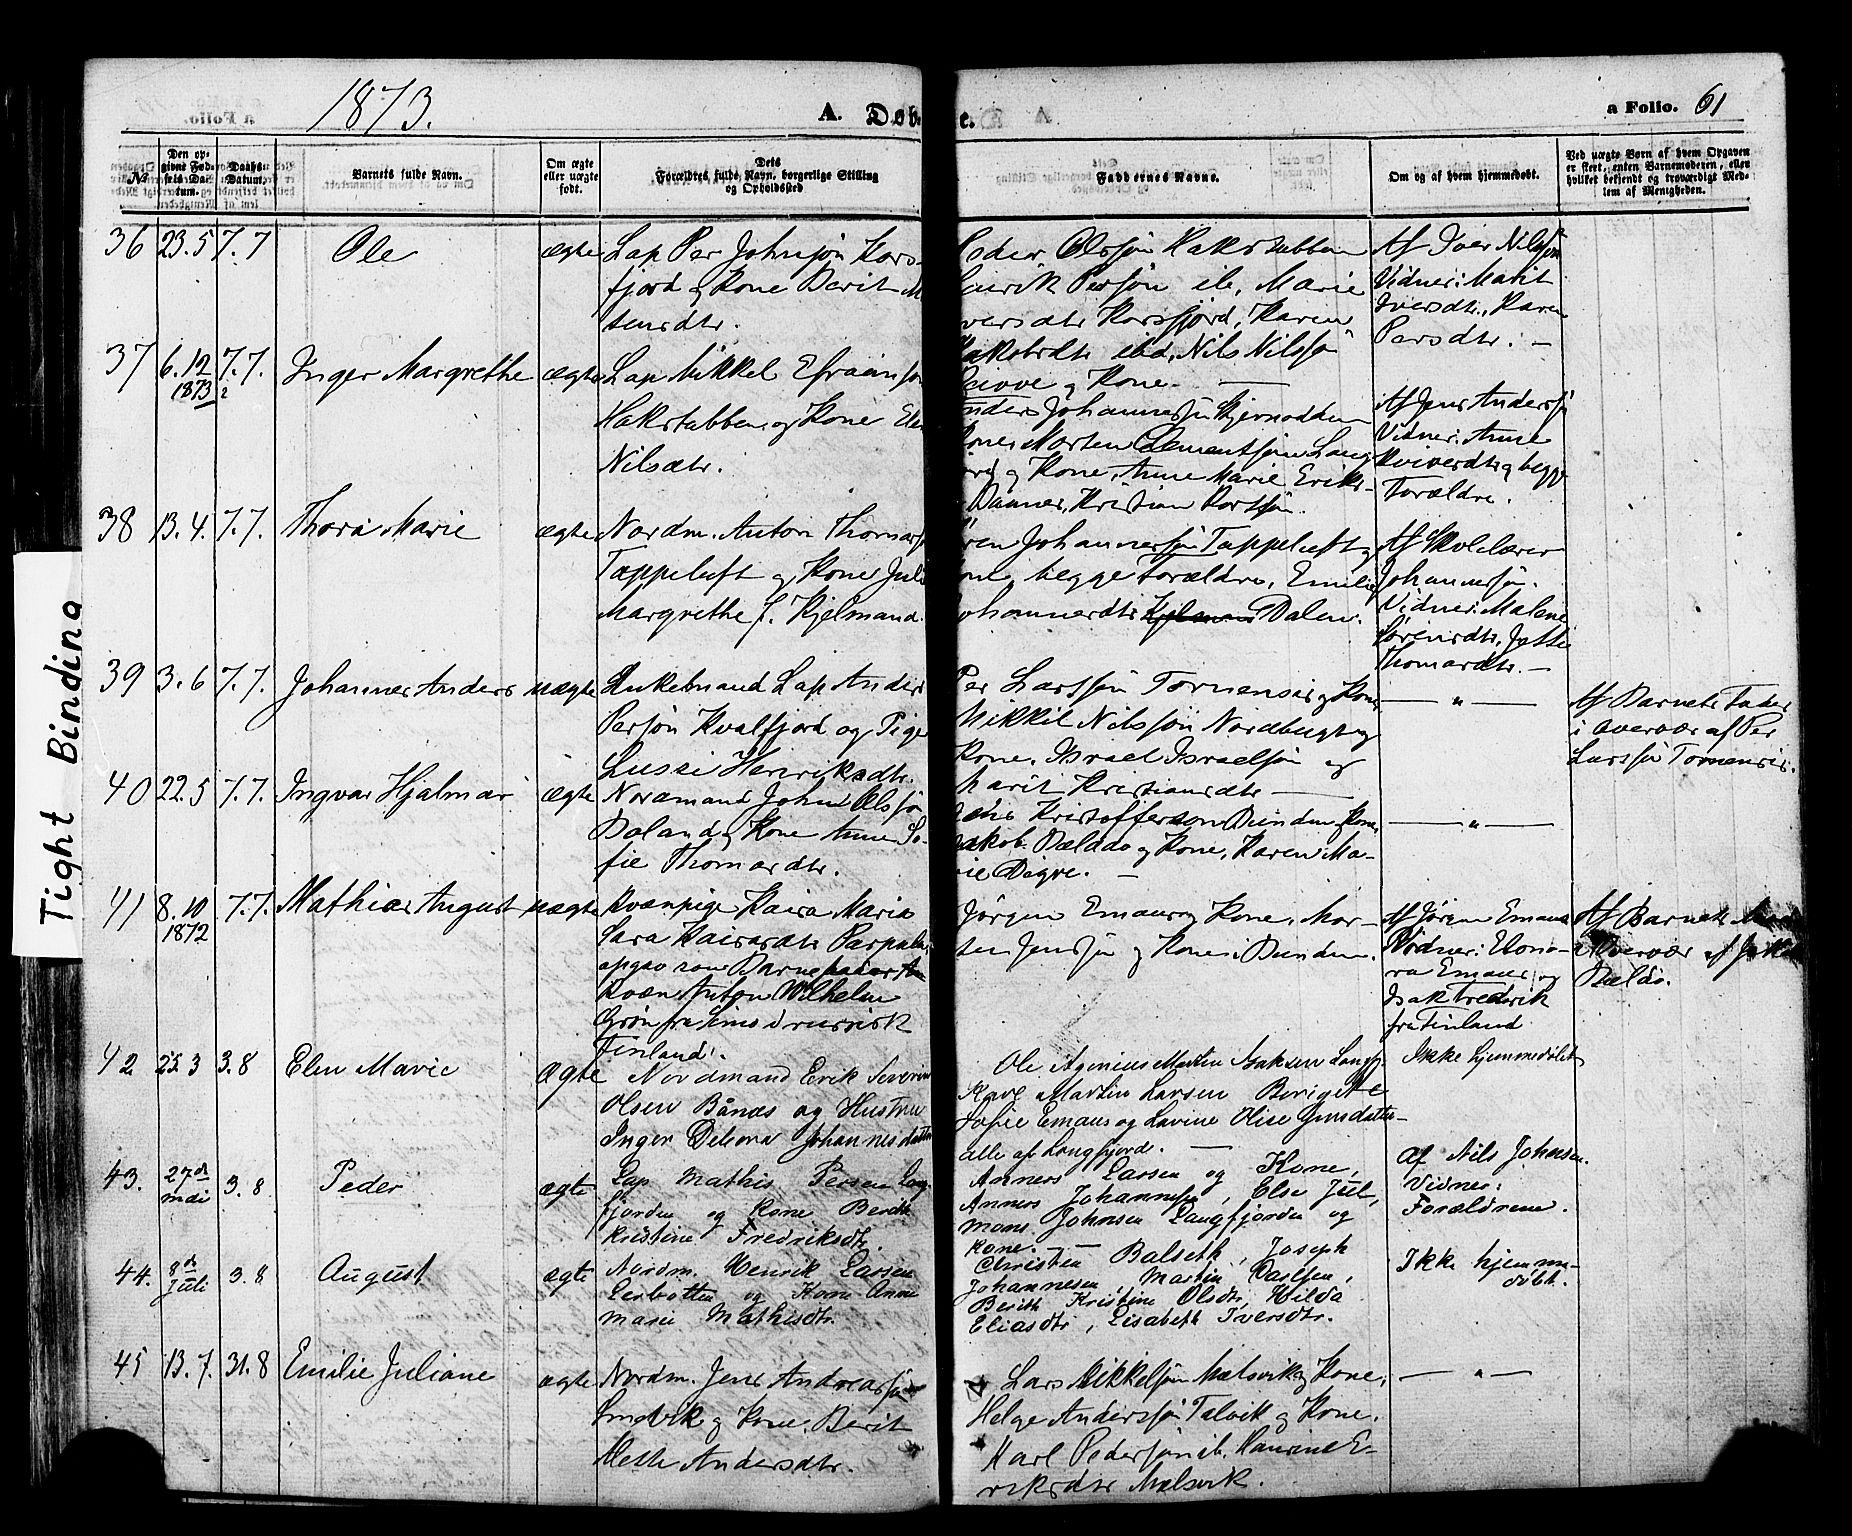 1873.
A. Døb
e.
a Folio. 61
№
Den op-
givne Fød-
sels Da-
tum.
Daabs-
Datum.
Barnets fulde Navn.
Om ægte
eller uægte
født.
Dets
Forældres fulde Navn, borgerlige Stilling
og Opholdsted
Faddernes Navne.
Om og af hvem hjemmedøbt.
Ved uægte Børn af hvem Opgaven
er skeet, enten Barnemoderen, eller
hvilket bekjendt og troværdigt Med-
lem af Menigheden.
Tight Binding
36 23.5 7.7 Ole ægte
Lap Per Johnsøn Kors-
fjord og Kone Berit M
tensdtr.
Peder Olsøn Hakstabben
Persøn ib, Marie
versdtr Korsfjord, Karen
Jakobsdtr ibid, Nils Nilssøn
og Kone. —
Af Iver Nilssøn
Vidner: Marit
Iversdtr, Karen
Persdtr. —
37 6.12 1873 7.7. Inger Margrethe ægte
Lap Mikkel Efraimsøn
Hakstabben og Kone Elen
Nilsdtr.
Anders Johannessøn
Kone, Morten Clementsøn Lang
og Kone, Anne Marie Eriks-
Kristian Korssøn.
Af Jens Anderssøn
Vidner: Anne
og begge
Forældre.
38 13.4. 7.7. Thora Marie ægte
Nordm. Anton Thomas
Tappeluft og Kone Juli
Margrethe f. Kjelmand.
ren Johannessøn Tappeluft og
one, begge Forældre, Emilie
Johannesdtr Dalen.
Af Skolelærer
Johannessøn.
Vidner: Malene
Sørensdtr, Jette
Thomasdtr. —
39 3.6 7.7. Johannes Anders uægte
Enkemand Lap Anders
Persøn Kvalfjord og Pige
Lussi Henriksdtr.
Per Larssøn Tornensis og Kone,
Mikkil Nilssøn Nordbugt og
Kone, Israel Israelsøn og
Marit Kristiansdtr —
— " —
Af Barnets Fader
i Overvær af Per
Larssøn Tornensis.
40 22.5 7.7. Ingvar Hjalmar ægte
Nordmand John Olssøn
og Kone Anne So-
fie Thomasdtr.
Kristofferson og Kone,
Jakob Bælddo og Kone, Karen Ma-
rie Digre. —
— " —
41 8.10 1872 7.7. Mathias August uægte
Kvænpige Kaisa Maria
Sara Kaisasdtr
opgav som Barnefader
Kvæn Anton Wilhelm
Grøn fra Simo i russisk
Finland.
Jørgen Emaus og Kone, Mor-
ten Jenssøn og Kone,
Af Jørgen Emaus
Vidner: Elono-
ra Emaus og
Isak Fredrik
fra Finland
Af Barnets
i Overvær af
Bældo.
42 25.3 3.8 Elen Marie ægte
Nordmand Erik Severin
Olsen Bånæs og Hustru
Inger Johannesdatter
Ole Martin Isaksen
Karl Martin Larsen
Sofie Emaus og Lavine Olise Jensdatter
alle af Langfjord. —
Ikke hjemmedøbt
43. 27de mai 3.8 Peder ægte
Lap Mathis Persen Lang-
fjorden og Kone Berith
Kristine Fredriksdtr.
Anners Larsen og Kone,
Anners Johannesen, Else Juul,
Mons Johnsen Langfjorden og
Kone. —
af Nils Johnsen.
Vidner:
Forældrene.
44. 8de Juli 3.8 August ægte
Nordm. Henrik Larsen
Lerbotten og Kone Anne
Marie Mathisdtr.
Christen Balseth, Joseph
Johannesen, Martin
Berith Kristine Olsdtr, Hilda
Eliasdtr, Lisabeth Iversdtr.
Ikke hjemme-
døbt.
45 13.7 31.8 Emilie Juliane ægte
Nordm. Jens Andreassøn
og Kone Berit
Mette Andersdtr.
Lars Mikkelsøn Mælsvik og Kone,
Helge Anderssøn Talvik og Kone,
Karl Pedersøn ib. Hansine E-
riksdtr Mælsvik.
— " —